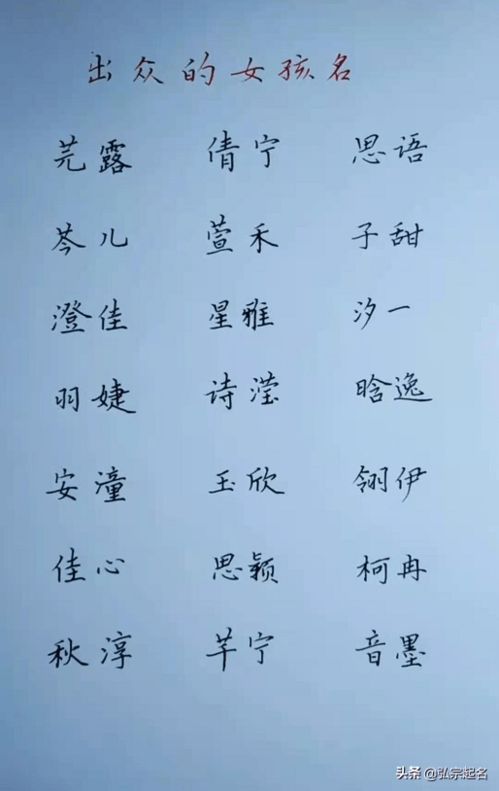 出众的女孩名
芫露 倩宁 思语
芩儿 萱禾 子甜
澄佳 星雅 汐一
羽婕 诗滢 晗逸
安潼 玉欣 翎伊
佳心 思颖 柯冉
秋淳 芊宁 音墨
头条 @弘宗起名